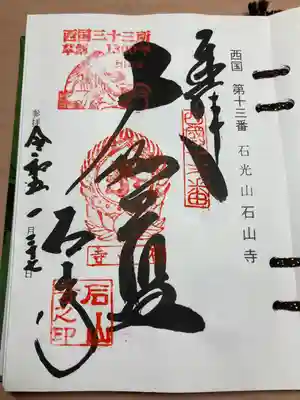 西国 第十三番 石光山 石山寺
奉拝
西国十三番
西国三十三所
草創1300年
石山寺
参拝 令和五 一月二十七日
石山
之印